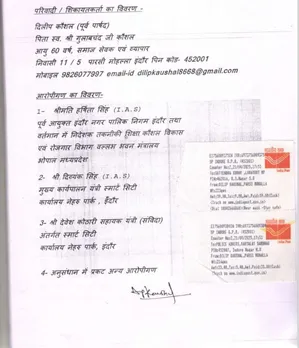 परिवादी / शिकायतकर्ता का विवरण -
दिलीप कौशल (पूर्व पार्षद)
पिता स्व. श्री गुलाबचंद जी कौशल
आयु 60 वर्ष, समाज सेवक एवं व्यापार
निवासी 11 / 5 पारसी मोहल्ला इंदौर पिन कोड- 452001
मोबाइल 9826077997 email-id dilipkaushal8668@gmail.com
आरोपीगण का विवरण:-
1- श्रीमति हर्षिता सिंह (I.A.S)
पूर्व आयुक्त इंदौर नगर पालिक निगम इंदौर तथा
वर्तमान में निदेशक तकनीकी शिक्षा कौशल विकास
एवं रोजगार विभाग वल्लभ भवन मंत्रालय
भोपाल मध्यप्रदेश
2- श्री दिव्यंक सिंह (I.A.S)
मुख्य कार्यपालन यंत्री स्मार्ट सिटी
कार्यालय नेहरु पार्क , इँदौर
3- श्री देवेश कोठारी सहायक यंत्री (संविदा)
अंतर्गत स्मार्ट सिटी
कार्यालय नेहरु पार्क, इंदौर
4- अनुसंधान में प्रकट अन्य आरोपीगण